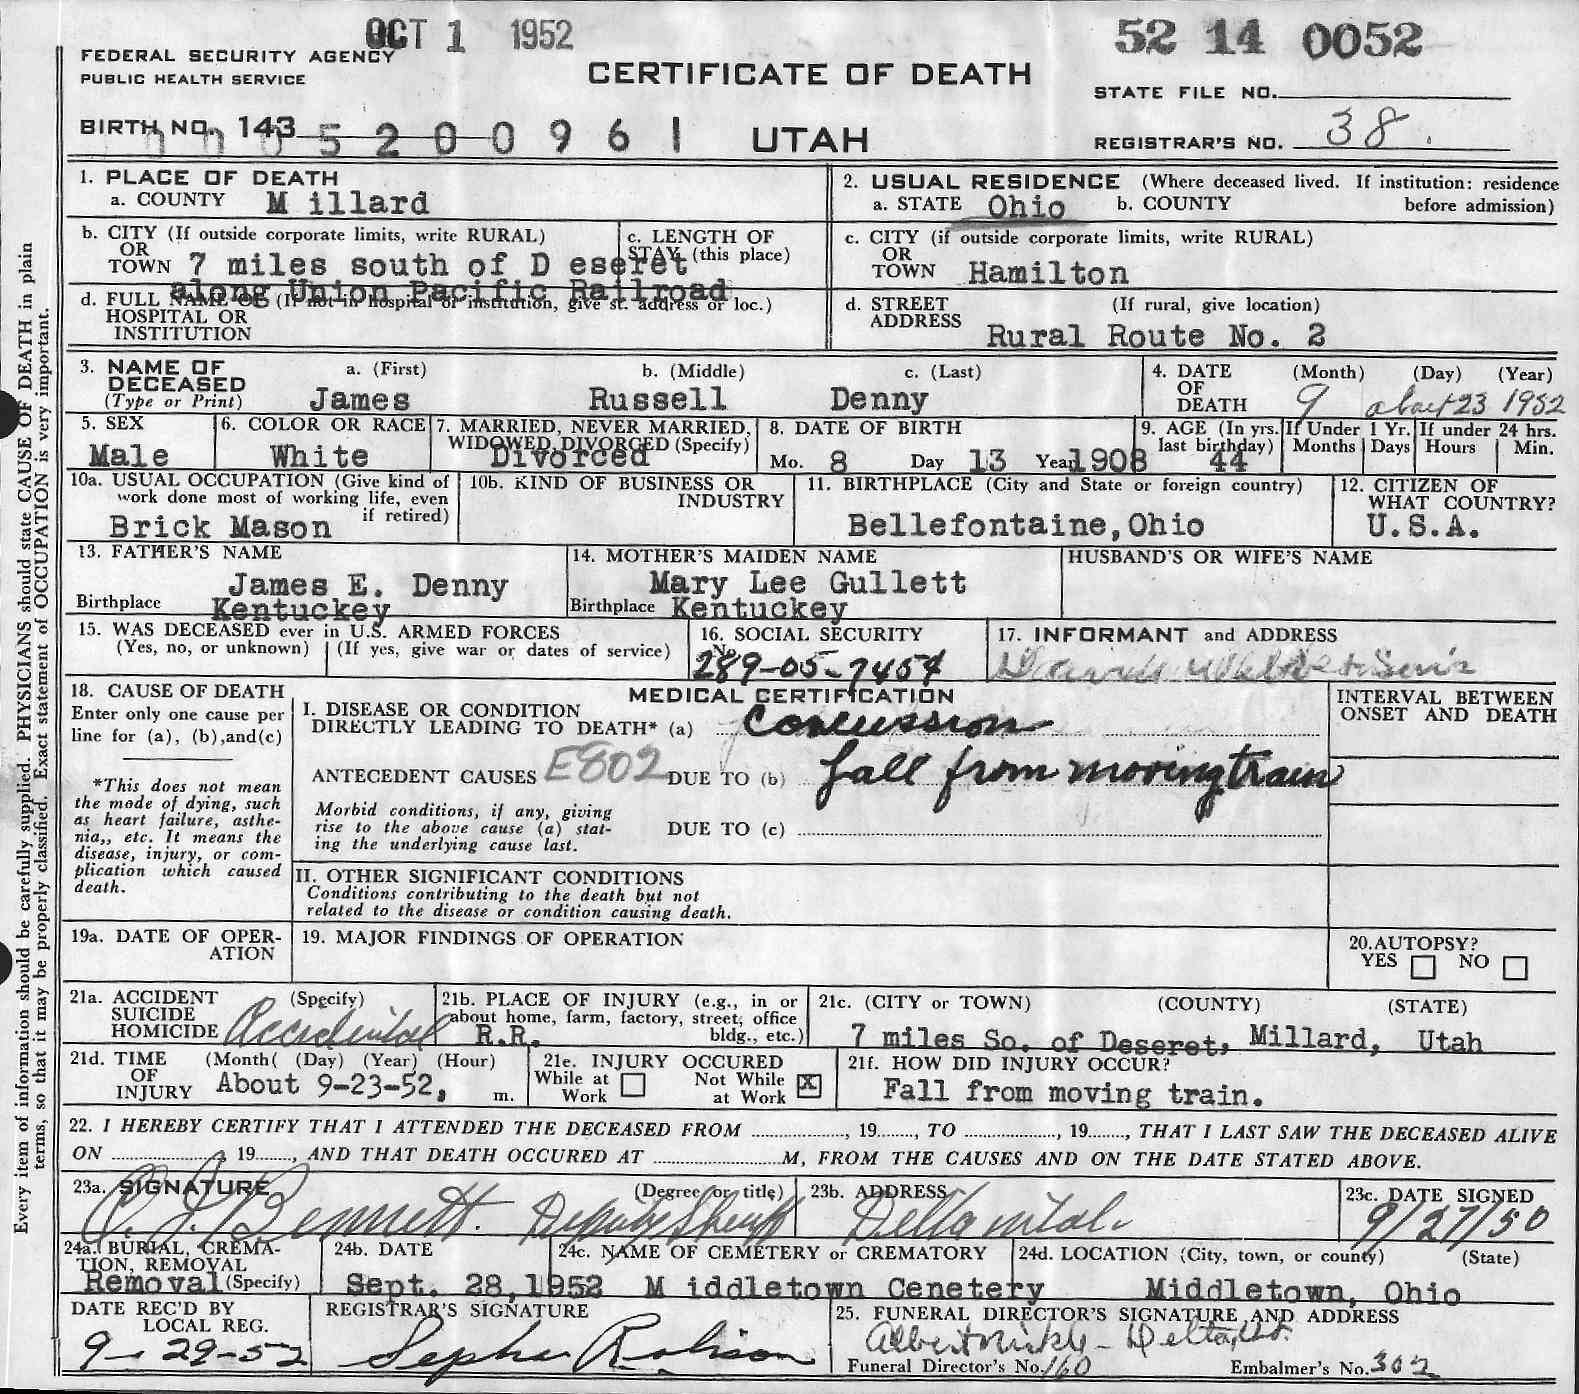 OCT 1 1952
52 14 0052
FEDERAL SECURITY AGENCY
PUBLIC HEALTH SERVICE
CERTIFICATE OF DEATH
STATE FILE NO.
BIRTH NO. 143 5 2 0 0 9 6 1
UTAH
REGISTRAR'S NO. 38.
1. PLACE OF DEATH
a. COUNTY M illard
2. USUAL RESIDENCE (Where deceased lived. If institution: residence before admission)
a. STATE Ohio b. COUNTY
b. CITY (If outside corporate limits, write RURAL)
OR
TOWN 7 miles south of D eseret
along Union Pacific Railroad
c. LENGTH OF
STAY (this place)
c. CITY (if outside corporate limits, write RURAL)
OR
TOWN Hamilton
d. FULL NAME OF (If not in hospital or institution, give st. address or loc.)
HOSPITAL OR
INSTITUTION
d. STREET (If rural, give location)
ADDRESS Rural Route No. 2
3. NAME OF a. (First) b. (Middle) c. (Last)
DECEASED
(Type or Print) James Russell Denny
4. DATE (Month) (Day) (Year)
OF
DEATH 9 about 23 1952
5. SEX
Male
6. COLOR OR RACE
White
7. MARRIED, NEVER MARRIED,
WIDOWED, DIVORCED (Specify)
Divorced
8. DATE OF BIRTH
Mo. 8 Day 13 Year 1908
9. AGE (In yrs.
last birthday)
44
If Under 1 Yr.
Months Days
If under 24 hrs.
Hours Min.
10a. USUAL OCCUPATION (Give kind of
work done most of working life, even
if retired)
Brick Mason
10b. KIND OF BUSINESS OR
INDUSTRY
11. BIRTHPLACE (City and State or foreign country)
Bellefontaine, Ohio
12. CITIZEN OF
WHAT COUNTRY?
U.S.A.
13. FATHER'S NAME
James E. Denny
Birthplace Kentuckey
14. MOTHER'S MAIDEN NAME
Mary Lee Gullett
Birthplace Kentuckey
HUSBAND'S OR WIFE'S NAME
15. WAS DECEASED ever in U.S. ARMED FORCES
(Yes, no, or unknown) (If yes, give war or dates of service)
16. SOCIAL SECURITY
No.
289-05-7454
17. INFORMANT and ADDRESS
18. CAUSE OF DEATH
Enter only one cause per
line for (a), (b), and (c)
*This does not mean
the mode of dying, such
as heart failure, asthe-
nia,, etc. It means the
disease, injury, or com-
plication which caused
death.
MEDICAL CERTIFICATION
I. DISEASE OR CONDITION
DIRECTLY LEADING TO DEATH* (a) Concussion
ANTECEDENT CAUSES E802 DUE TO (b) fall from moving train
Morbid conditions, if any, giving
rise to the above cause (a) stat-
ing the underlying cause last.
DUE TO (c)
INTERVAL BETWEEN
ONSET AND DEATH
II. OTHER SIGNIFICANT CONDITIONS
Conditions contributing to the death but not
related to the disease or condition causing death.
19a. DATE OF OPER-
ATION
19. MAJOR FINDINGS OF OPERATION
20. AUTOPSY?
YES NO
21a. ACCIDENT (Specify)
SUICIDE
HOMICIDE Accidental
21b. PLACE OF INJURY (e.g., in or
about home, farm, factory, street, office
bldg., etc.)
R.R.
21c. (CITY or TOWN) (COUNTY) (STATE)
7 miles So. of Deseret, Millard, Utah
21d. TIME (Month( (Day) (Year) (Hour)
OF
INJURY About 9-23-52, m.
21e. INJURY OCCURED
While at Work Not While at Work X
21f. HOW DID INJURY OCCUR?
Fall from moving train.
22. I HEREBY CERTIFY THAT I ATTENDED THE DECEASED FROM , 19 , TO , 19 , THAT I LAST SAW THE DECEASED ALIVE
ON , 19 , AND THAT DEATH OCCURED AT M, FROM THE CAUSES AND ON THE DATE STATED ABOVE.
23a. SIGNATURE (Degree or title)
C. J. Bennett. Deputy Sheriff
23b. ADDRESS
Delta Utah.
23c. DATE SIGNED
9/27/50
24a. BURIAL, CREMA-
TION, REMOVAL
Removal (Specify)
24b. DATE
Sept. 28, 1952
24c. NAME OF CEMETERY or CREMATORY
M iddletown Cenetery
24d. LOCATION (City, town, or county) (State)
Middletown, Ohio
DATE REC'D BY
LOCAL REG.
9-29-52
REGISTRAR'S SIGNATURE
25. FUNERAL DIRECTOR'S SIGNATURE AND ADDRESS
Albert Nickle - Delta, Ut.
Funeral Director's No. 160 Embalmer's No. 302
Every item of information should be carefully supplied. PHYSICIANS should state CAUSE OF DEATH in plain
terms, so that it may be properly classified. Exact statement of OCCUPATION is very important.